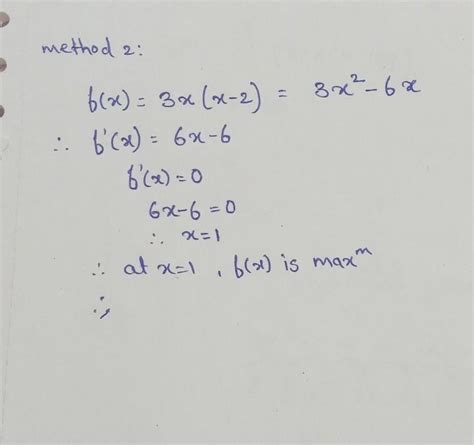 method 2:
f(x) = 3x(x-2) = 3x²-6x
∴ f'(x) = 6x-6
f'(x)=0
6x-6=0
∴ x=1
∴ at x=1, f(x) is maxᵐ
∴